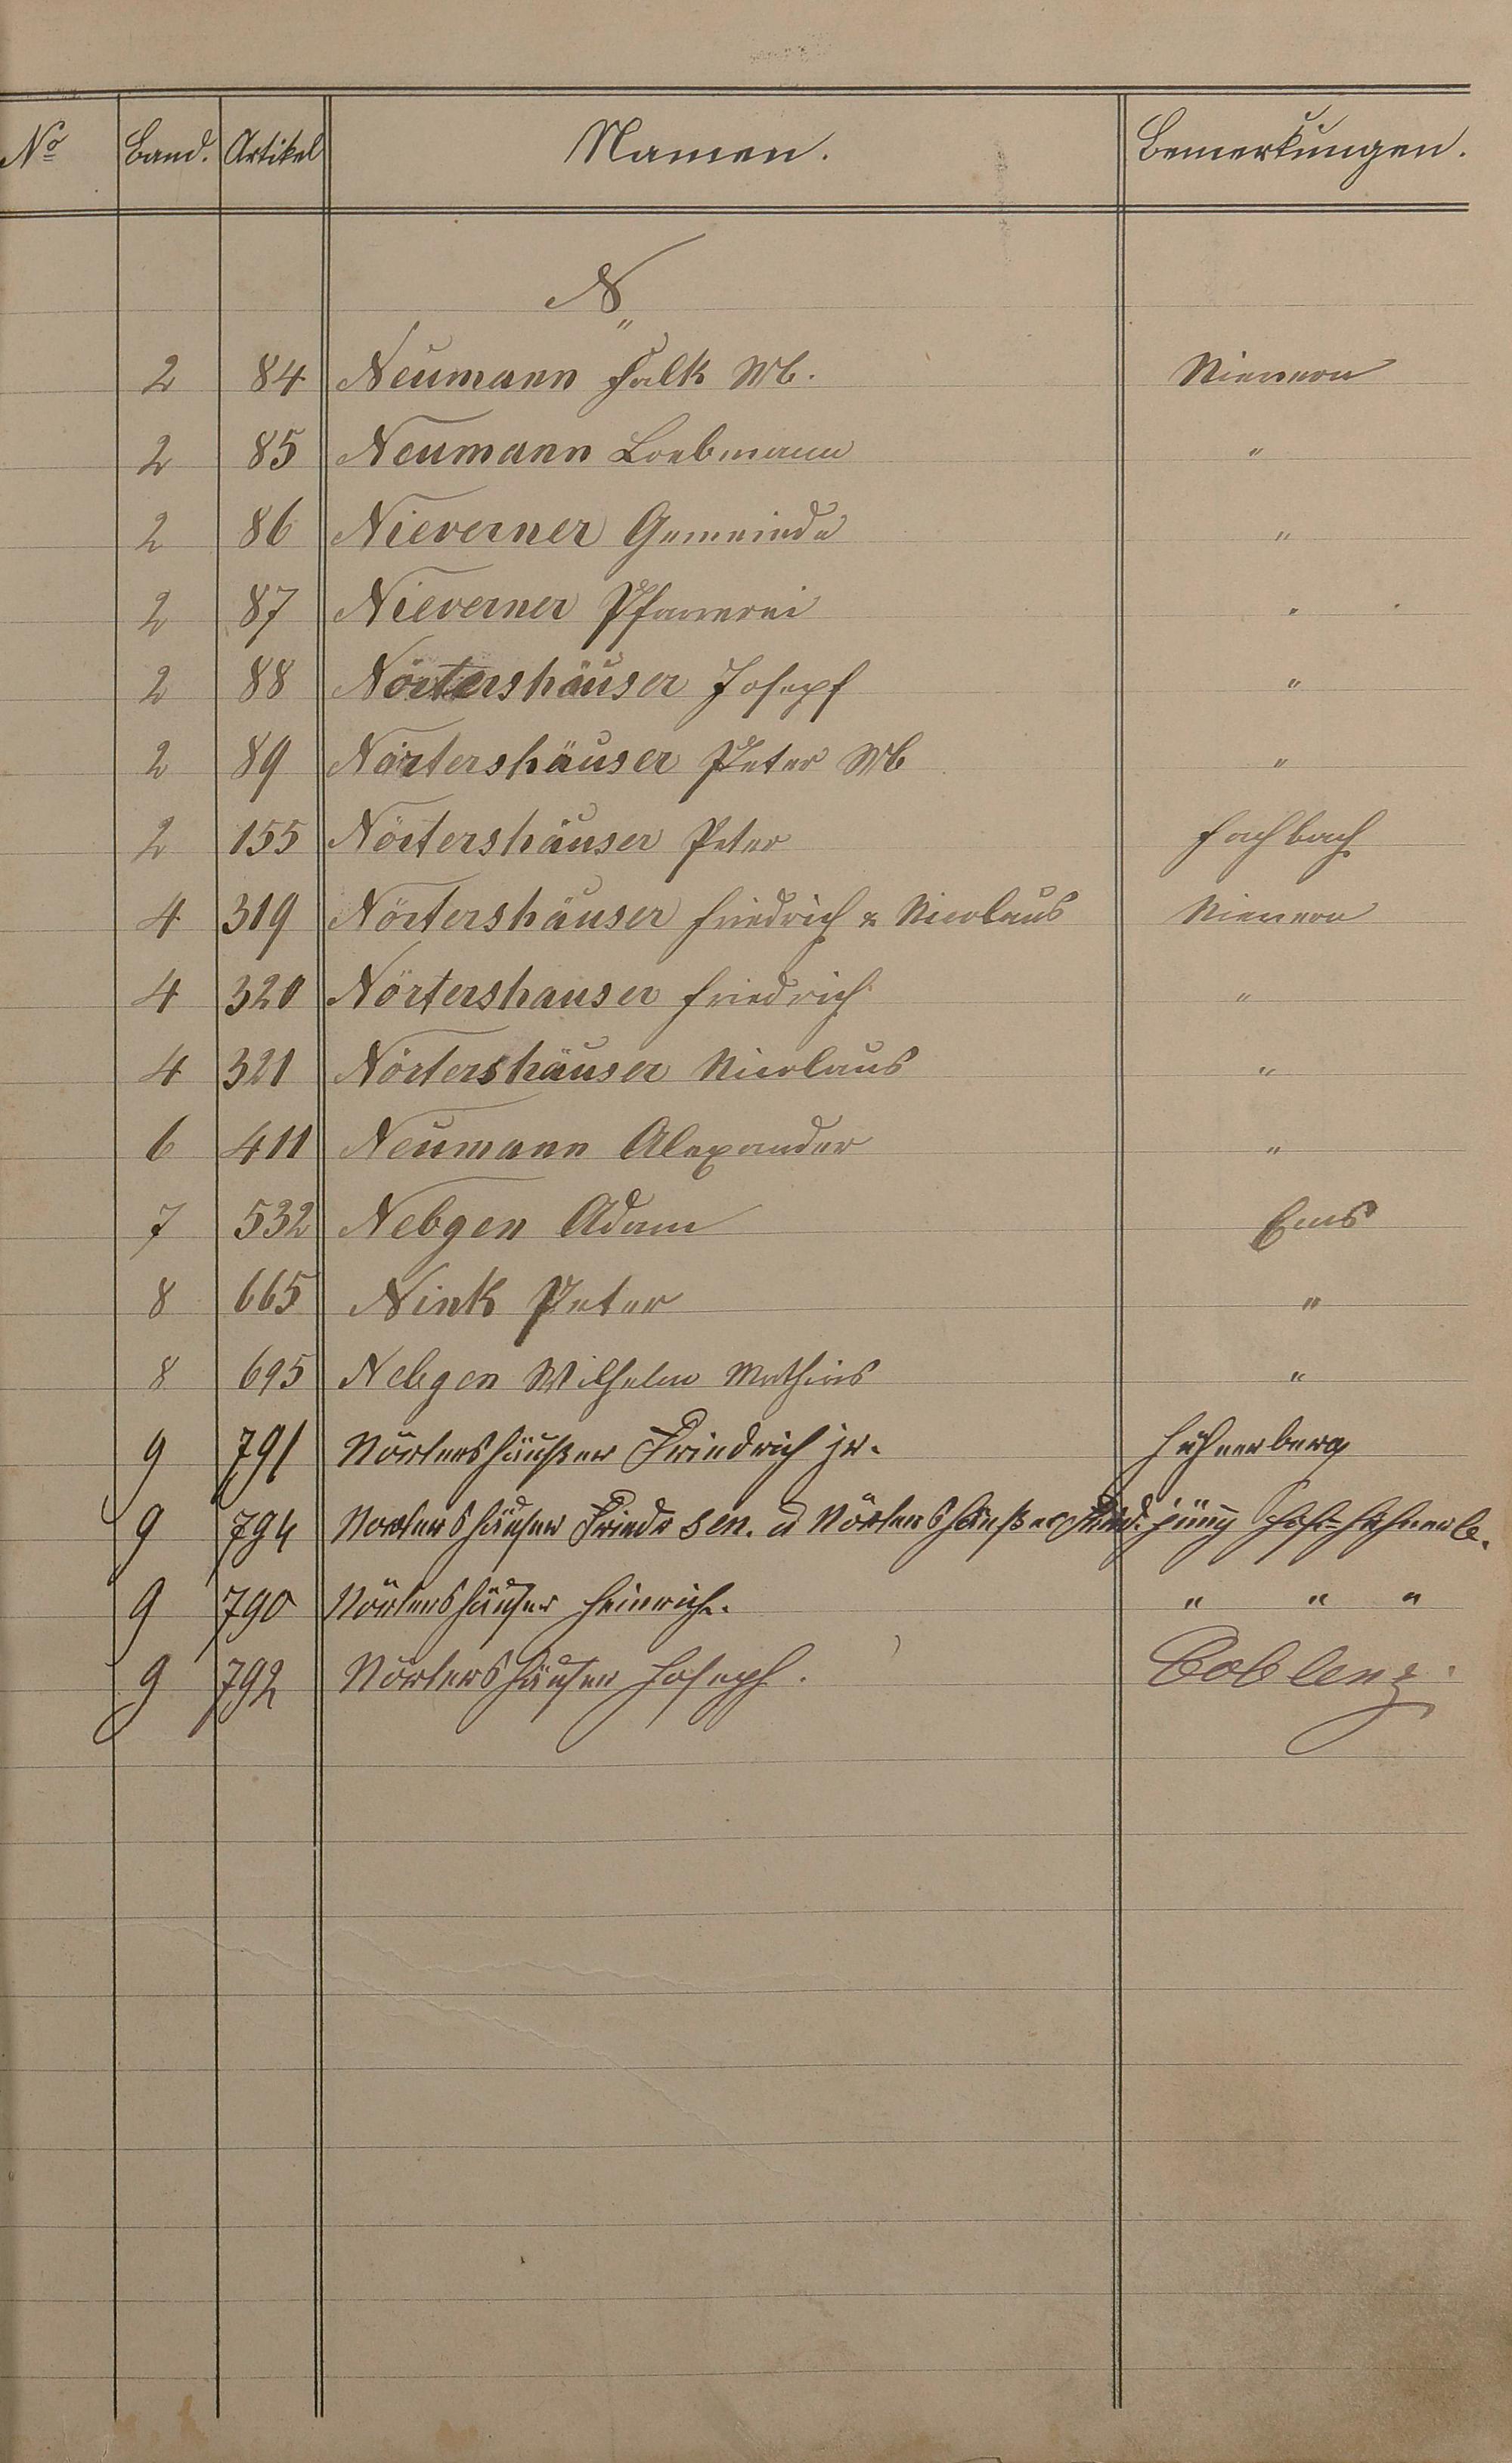 No Band. Artikel Namen. Bemerkungen.
N
2 84 Neumann Falk Wb. Nievern
2 85 Neumann Loebmann "
2 86 Nieverner Gemeinde "
2 87 Nieverner Pfarrei "
2 88 Nörtershäuser Josepf "
2 89 Nörtershäuser Peter Wb "
2 155 Nörtershäuser Peter Fachbach
4 319 Nörtershäuser Friedrich & Nicolaus Nievern
4 320 Nörtershauser Friedrich "
4 321 Nörtershäuser Nicolaus "
6 411 Neumann Alexander "
7 532 Nebgen Adam Ems
8 665 Nink Peter "
8 695 Nebgen Wilhelm Mathias "
9 791 Nörtershäußer Friedrich jr. Hühnerberg
9 794 Nörtershäuser Friedr sen. u Nörtershäußer Fried. jung Hof-Hühnerb.
9 790 Nörtershäuser Heinrich. " " "
9 792 Nörtershäuser Joseph. Coblenz.